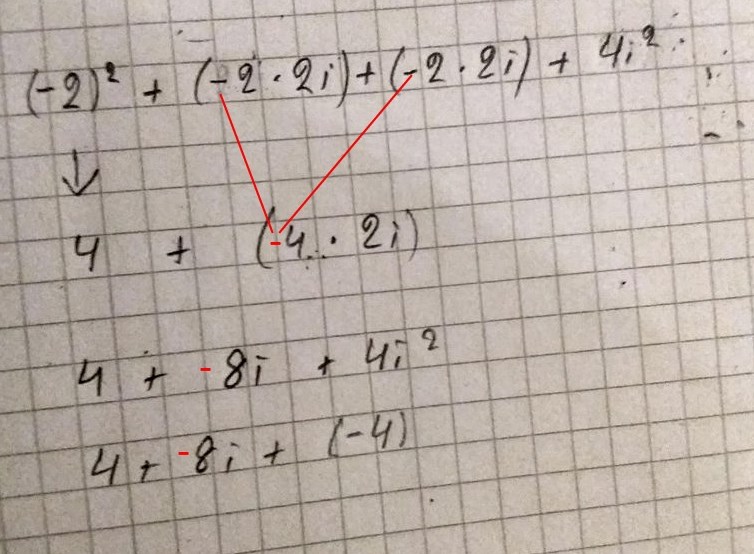 (-2)² + (-2 · 2i) + (-2 · 2i) + 4i²
↓
4 + (-4 · 2i)
4 + -8i + 4i²
4 + -8i + (-4)